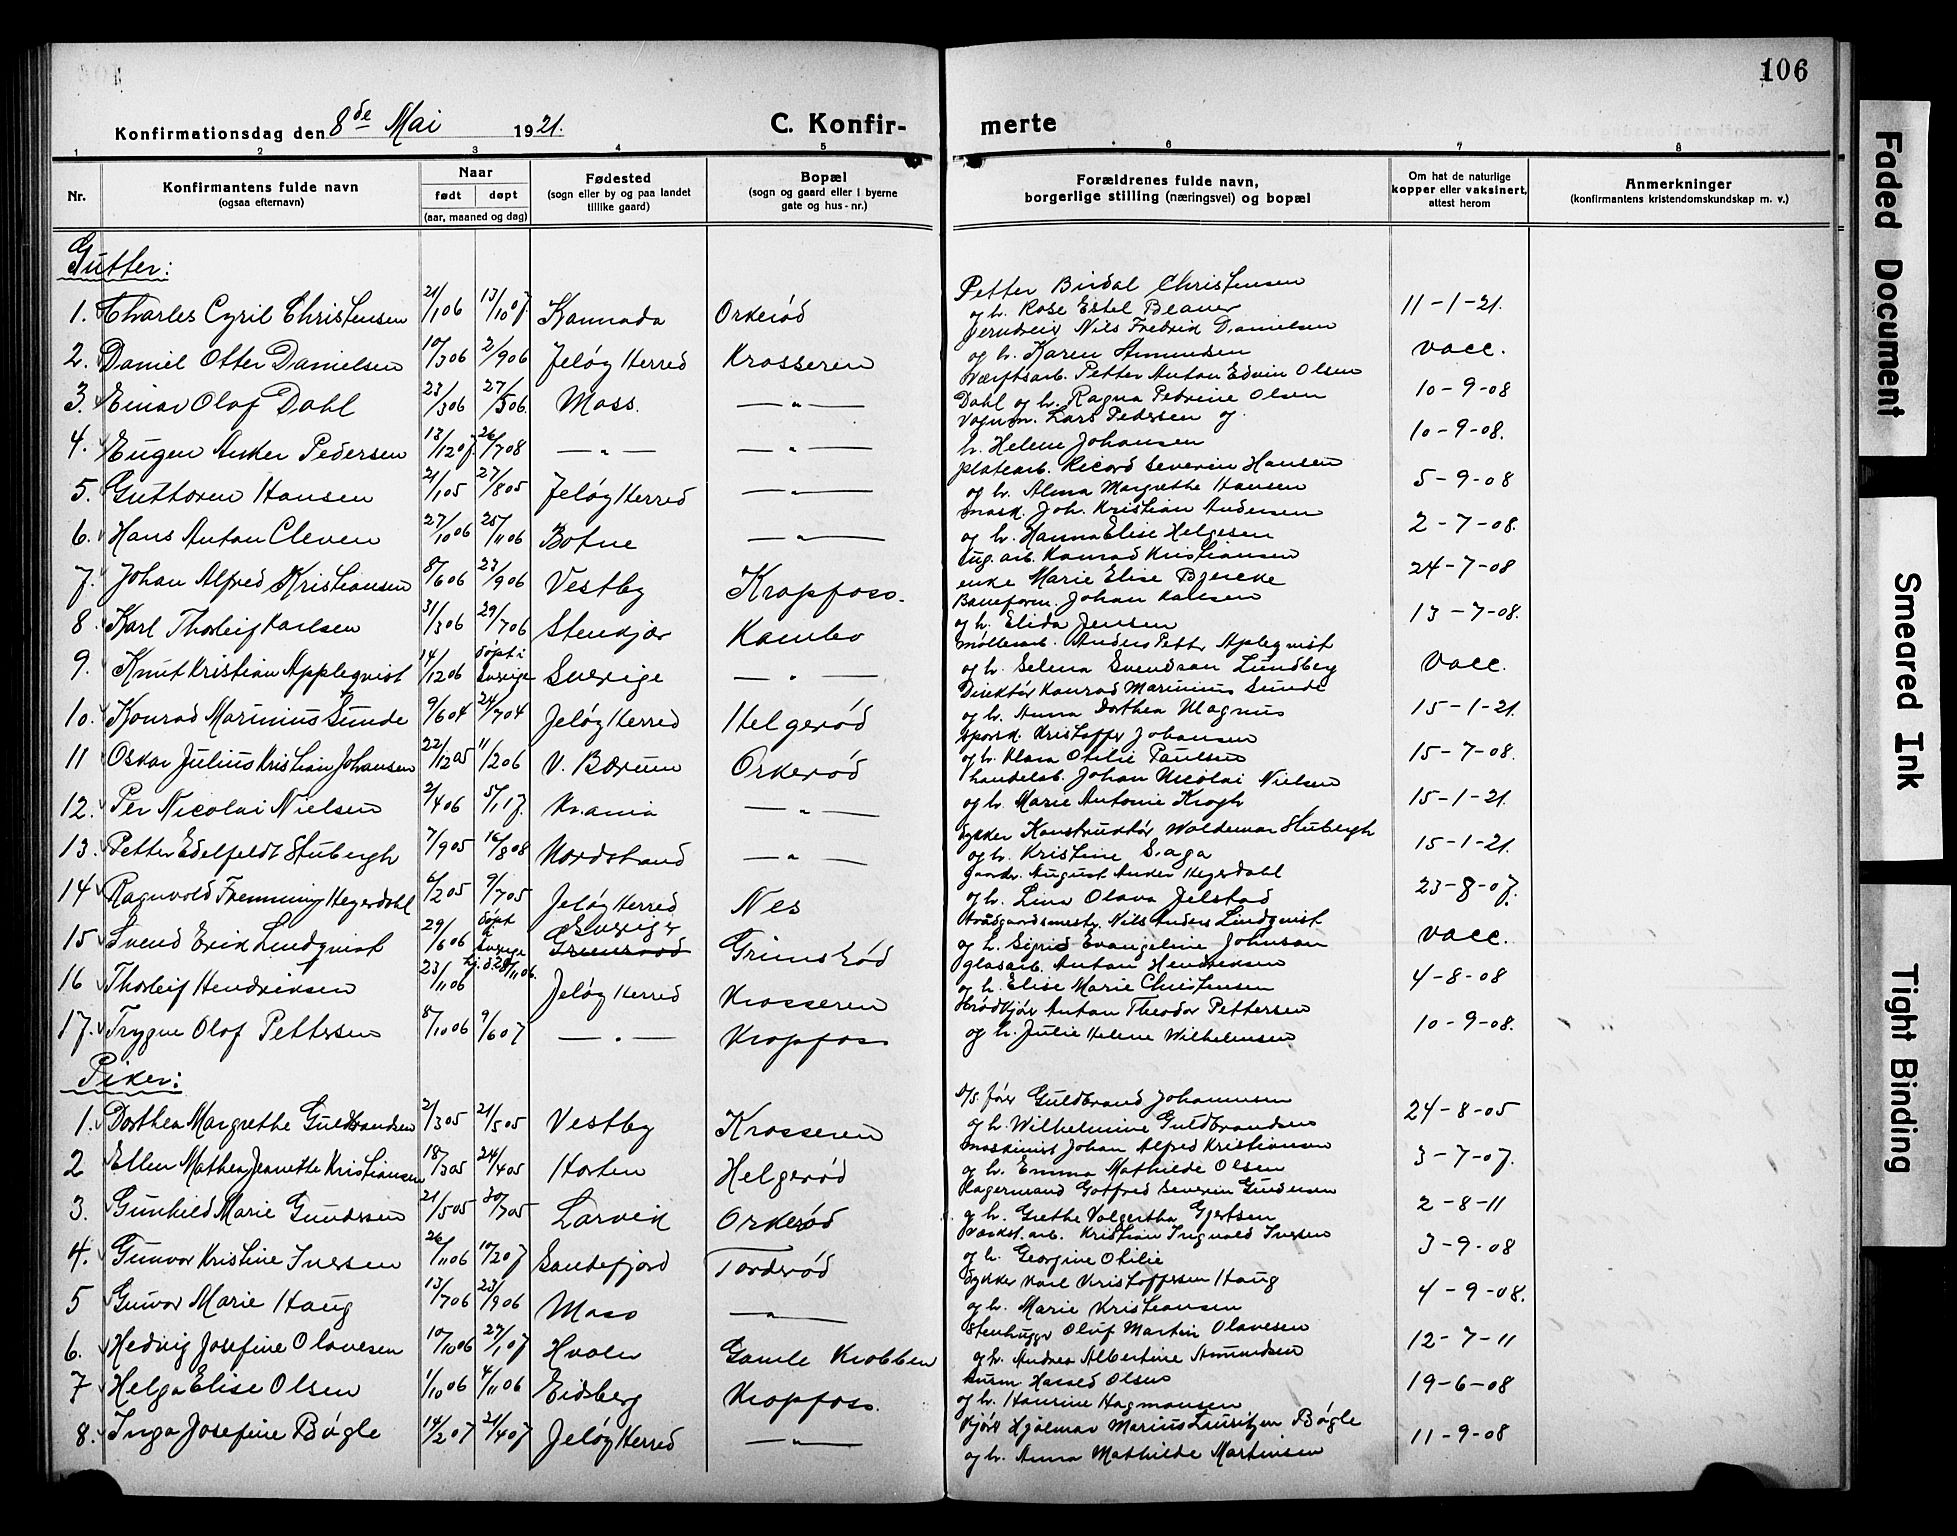 106
Konfirmationsdag den 8de Mai 1921. C. Konfirmerte
1 2 3 4 5 6 7 8
Nr. Konfirmantens fulde navn (ogsaa efternavn) Naar født døpt (aar, maaned og dag) Fødested (sogn eller by og paa landet tillike gaard) Bopæl (sogn og gaard eller i byerne gate og hus-nr.) Forældrenes fulde navn, borgerlige stilling (næringsvei) og bopæl Om hat de naturlige kopper eller vaksinert, attest herom Anmerkninger (konfirmantens kristendomskundskap m. v.)
Gutter:
1. Charles Cyril Christensen 21/1 06 13/10 07. Kannada Orkerød Petter Bindal Christensen og h. Rose Estel Beaver 11-1-21.
2. Daniel Otter Danielsen 10/3 06 2/9 06 Jeløy Herred Krosseren Nils Fredrik Danielsen og h. Karen Amundsen Vacc.
3. Einar Olaf Dahl 23/3 06 27/5 06. Moss. —„— Værftsarb. Petter Anton Edvin Olsen Dahl og h. Ragna Petrine Olsen 10-9-08
4. Eugen Anker Pedersen 13/12 07. 26/7 08 —„— —„— Vognm. Lars Pedersen og h. Helene Johansen 10-9-08.
5. Guttorm Hansen 21/1 05 27/8 05 Jeløy Herred —„— Platearb. Ricard Severin Hansen og h. Alma Margrethe Hansen 5-9-08
6. Hans Anton Cleven 27/10 06 25/11 06 Botne —„— Mask. Joh. Kristian Andersen og h. Hanna Elise Helgesen 2-7-08.
7. Johan Alfred Kristiansen 8/6 06 23/9 06 Vestby Kropfoss. Tug. arb. Konrad Kristiansen enke Marie Elise Bjercke 24-7-08
8. Karl Thorleif Karlsen 31/3 06 29/7 06 Stenkjær Kambo Baneform. Johan Karlsen og h. Elida Jensen 13-7-08.
9. Knut Kristian Appleqvist 14/12 06 døpt i Sverige Sverige —„— Møllearb. Anders Petter Apleqvist og h. Selena Svendsan Lundberg Vacc.
10. Konrad Marinius Sunde 9/6 04 24/7 04 Jeløy Herred Helgerød Direktør Konrad Marinius Sunde og h. Anna Dorthea Magnus 15-1-21.
11 Oskar Julius Kristian Johansen 22/12 05 11/2 06 V. Bærum Orkerød Kristoffer Johansen og h. Klara Otilie Paulsen 15-7-08.
12. Per Nicolai Nielsen 2/4 06 5/1 17. Kr.ania —„— Handelsb. Johan Nicolai Nielsen og h. Marie Antonie Krogh 15-1-21.
13. Petter Edelfeldt Stubergh 7/9 05 16/8 08 Nordstrand —„— Dykker Konstruktør Waldemar Stubergh og h. Kristine Saga 15-1-21.
14 Ragnvald Flemming Hegerdahl 6/2 05 9/7 05 Jeløy Herred Nes Gaardb. August Anker Hegerdahl og h. Lina Olava Jelstad 23-8-07.
15 Svend Erik Lindqvist 29/6 06 døpt i Sverige Sverige Grimsrød Nils Anders Lindqvist og h. Sigrid Evangeline Johnson Vacc.
16 Thorleif Hendriksen 23/11 06 hj. d. 28/11 06. Jeløy Herred Krosseren Glasarb. Anton Hendriksen og h. Elise Marie Christensen 4-8-08
17. Trygve Olaf Pettersen 8/10 06 9/6 07 —„— Kropfoss Brødkjør Anton Theodor Pettersen og h. Julie Helene Wilhelmsen 10-9-08.
Piker:
1. Dorthea Margrethe Guldbrandsen 2/3 05 21/5 05 Vestby Krosseren D/S fører Guldbrand Johannesen og h. Wilhelmine Guldbrandsen 24-8-05
2 Ellen Mathea Jeanette Kristiansen 18/3 05 24/4 05 Horten Helgerød Maskinist Johan Alfred Kristiansen og h. Emma Mathilde Olsen 3-7-07.
3. Gunhild Marie Gundersen 21/5 05 30/7 05 Larvik Orkerød Lagermand Gotfred Severin Gundersen og h. Grethe Valgertha Gjertsen 2-8-11
4. Gunvor Kristine Iversen 26/11 06 10/2 07 Sandefjord Torderød Verkst. arb. Kristian Ingvald Iversen og h. Georgine Otilie 3-9-08
5 Gunvor Marie Haug 13/7 06 23/9 06 Moss —„— Dykker Karl Kristoffersen Haug og h. Marie Kristiansen 4-9-08.
6. Hedvig Josefine Olavesen 10/10 06 27/1 07 Hvaler Gamle Krobben Stenhugger Oluf Martin Olavesen og h. Andrea Albertine Amundsen 12-7-11
7 Helga Elise Olsen 1/10 06 4/11 06 Eidsberg Kropfoss. Harald Olsen og h. Haurine Hagmansen 19-6-08
8. Inga Josefine Bøgle 14/2 07 21/4 07 Jeløy Herred —„— Kjør. Hjalmar Marius Lauritzen Bøgle og h. Anna Mathilde Martinsen 11-9-08
Faded Document
Smeared Ink
Tight Binding